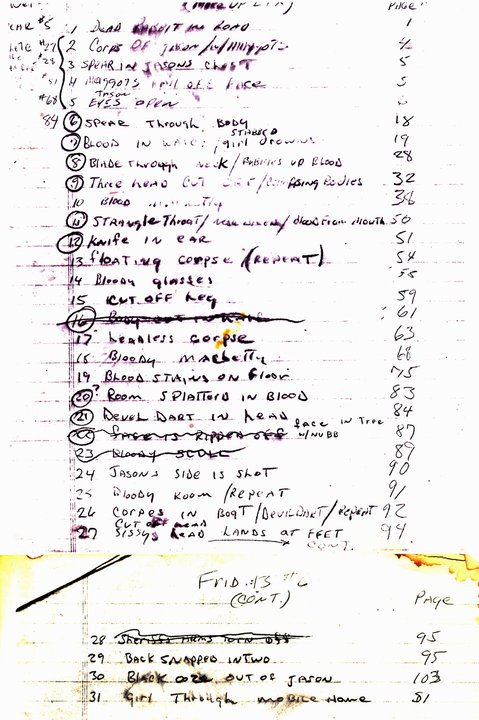 (MAKE UP LIST) PAGE
#5 1 DEAD RABBIT IN ROAD 1
#27 2 CORPS OF JASON
#28 3 SPEAR IN JASONS CHEST 5
#31 4 MAGGOTS FALL OFF FACE 5
JASON
#68 5 EYES OPEN
84 6 SPEAR THROUGH BODY 18
7 BLOOD IN WATER / girl DROWNS STABBED 19
8 BLADE THROUGH NECK / BUBBLES UP BLOOD 28
9 THREE HEAD CUT OFF / BODIES 32
10 BLOODY 38
11 STRANGLE THROAT / NECK / BLOOD FROM MOUTH 50
12 KNIFE IN EAR 51
13 FLOATING CORPSE (REPEAT) 54
14 BLOODY GLASSES 55
15 CUT OFF LEG 59
16 BODY CUT IN HALF 61
17 HEADLESS CORPSE 63
18 BLOODY MACHETTY 68
19 BLOOD STAINS ON FLOOR 75
20? ROOM SPLATTORD IN BLOOD 83
21 DEVEL DART IN HEAD 84
22 FACE IS RIPPED OFF FACE IN TREE W/NUBB 87
23 BLOODY SCULL 89
24 JASONS SIDE IS SHOT 90
25 BLOODY ROOM / REPEAT 91
26 CORPES IN BOAT / DEVIL DART / REPEAT 92
CUT OFF HEAD
27 SISSYS HEAD LANDS AT FEET 94
CONT.
FRID. 13 #6
(CONT.) PAGE
28 SHERIFFS ARMS TORN OFF 95
29 BACK SNAPPED IN TWO 95
30 BLACK OOZE OUT OF JASON 103
31 GIRL THROUGH MOBILE HOME 81